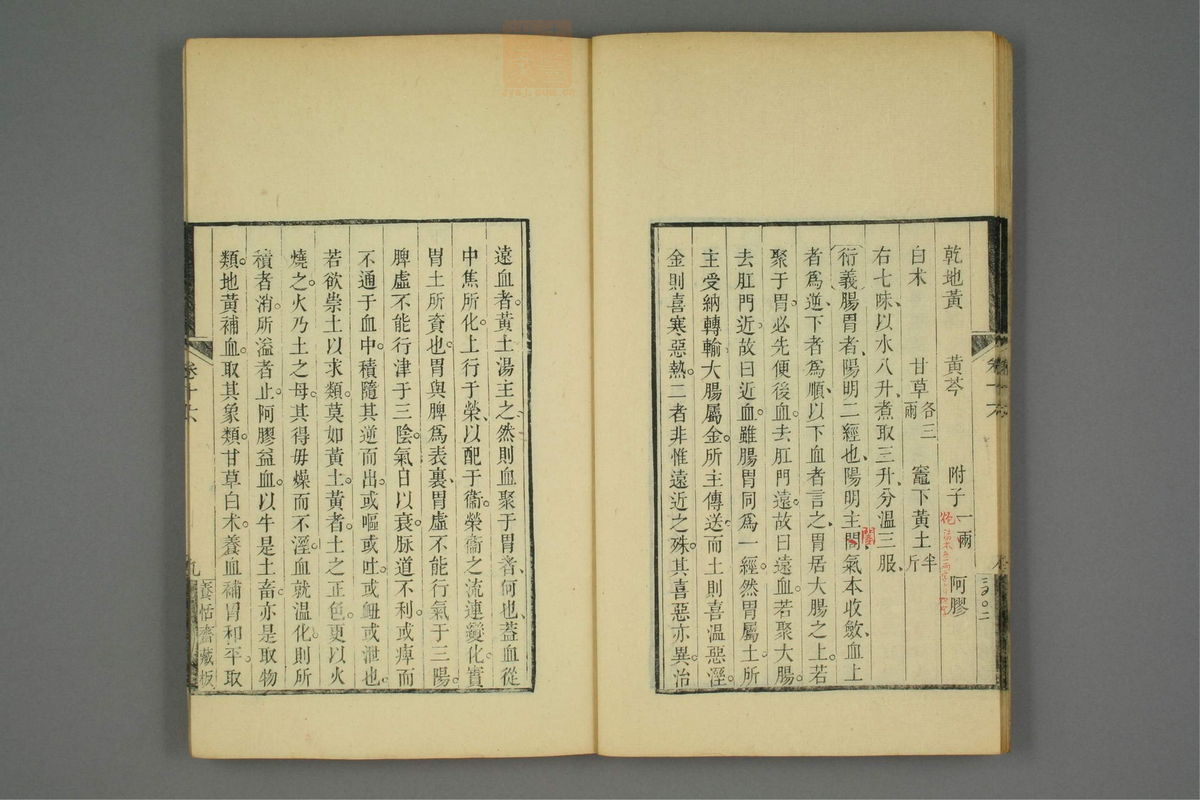 乾地黃 黃芩 附子一兩 阿膠
白术 甘草各三兩 竈下黃土半斤
右七味以水八升煮取三升分溫三服
衍義腸胃者陽明二經也陽明主閤氣本收斂血上
闔
者爲逆下者爲順以下血者言之胃居大腸之上若
聚于胃必先便後血去肛門遠故曰遠血若聚大腸
去肛門近故曰近血雖腸胃同爲一經然胃屬土所
主受納轉輸大腸屬金所主傳送而土則喜溫惡溼
金則喜寒惡熱二者非惟遠近之殊其喜惡亦異治
遠血者黃土湯主之然則血聚于胃者何也蓋血從
中焦所化上行于榮以配于衞榮衞之流連變化實
胃土所資也胃與脾爲表裏胃虛不能行氣于三陽
脾虛不能行津于三陰氣日以衰脉道不利或痺而
不通于血中積隨其逆而出或嘔或吐或衄或泄也
若欲祟土以求類莫如黃土黃者土之正色更以火
燒之火乃土之母其得毋燥而不溼血就温化則所
積者消所溢者止阿膠益血以牛是土畜亦是取物
類地黃補血取其象類甘草白术養血補胃和平取
卷十六 九
養恬齋藏板